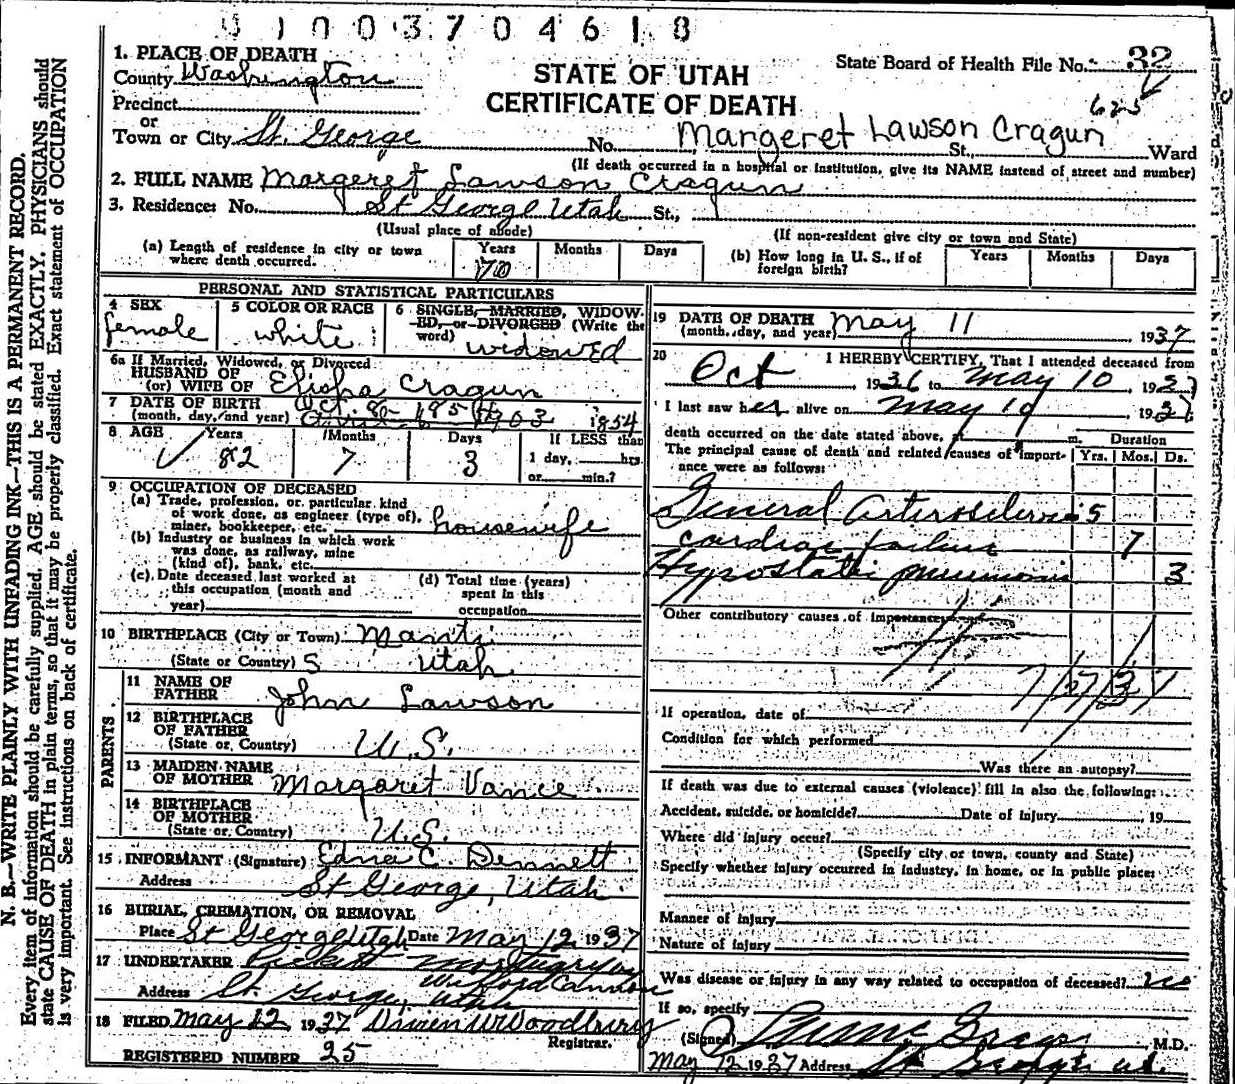 1003704618
1. PLACE OF DEATH
County Washington
Precinct
or
Town or City St. George
STATE OF UTAH
CERTIFICATE OF DEATH
State Board of Health File No. 32
625
No. Margeret Lawson Cragun St., Ward
(If death occurred in a hospital or institution, give its NAME instead of street and number)
2. FULL NAME Margeret Lawson Cragun
3. Residence: No. St George Utah St.,
(Usual place of abode) (If non-resident give city or town and State)
(a) Length of residence in city or town where death occurred. Years 70 Months Days
(b) How long in U. S., if of foreign birth? Years Months Days
PERSONAL AND STATISTICAL PARTICULARS
4 SEX female
5 COLOR OR RACE white
6 SINGLE, MARRIED, WIDOWED, or DIVORCED (Write the word) widowed
6a If Married, Widowed, or Divorced
HUSBAND OF
(or) WIFE OF Elisha Cragun
7 DATE OF BIRTH
(month, day, and year) Oct 8 1854
8 AGE Years 82 Months 7 Days 3 If LESS than 1 day, hrs. or min.?
9 OCCUPATION OF DECEASED
(a) Trade, profession, or particular kind
of work done, as engineer (type of),
miner, bookkeeper, etc. housewife
(b) Industry or business in which work
was done, as railway, mine
(kind of), bank, etc.
(c) Date deceased last worked at
this occupation (month and
year)
(d) Total time (years)
spent in this
occupation
10 BIRTHPLACE (City or Town) Manti
(State or Country) S Utah
PARENTS
11 NAME OF
FATHER John Lawson
12 BIRTHPLACE
OF FATHER
(State or Country) U.S.
13 MAIDEN NAME
OF MOTHER Margaret Vance
14 BIRTHPLACE
OF MOTHER
(State or Country) U.S.
15 INFORMANT (Signature) Edna C. Bennett
Address St George, Utah
16 BURIAL, CREMATION, OR REMOVAL
Place St George Utah Date May 12 1937
17 UNDERTAKER Pickett Mortuary by
Wilford Cannon
Address St. George, Utah
18 FILED May 12 1937 Vivien W Woodbury
Registrar.
REGISTERED NUMBER 25
19 DATE OF DEATH
(month, day, and year) May 11 1937
20 I HEREBY CERTIFY, That I attended deceased from
Oct, 1936 to May 10, 1937
I last saw her alive on May 10 1937
death occurred on the date stated above, at m.
Duration
The principal cause of death and related causes of importance were as follows: Yrs. Mos. Ds.
General Arteriosclerosis 5
cardiac failure 7
Hypostatic pneumonia 3
Other contributory causes of importance:
7/27/37
If operation, date of
Condition for which performed
Was there an autopsy?
If death was due to external causes (violence) fill in also the following:
Accident, suicide, or homicide? Date of injury , 19
Where did injury occur?
(Specify city or town, county and State)
Specify whether injury occurred in industry, in home, or in public place:
Manner of injury
Nature of injury
Was disease or injury in any way related to occupation of deceased? no
If so, specify
(Signed) , M.D.
May 12 1937 Address St George ut.
N. B.—WRITE PLAINLY WITH UNFADING INK—THIS IS A PERMANENT RECORD.
Every item of information should be carefully supplied. AGE should be stated EXACTLY. PHYSICIANS should
state CAUSE OF DEATH in plain terms, so that it may be properly classified. Exact statement of OCCUPATION
is very important. See instructions on back of certificate.